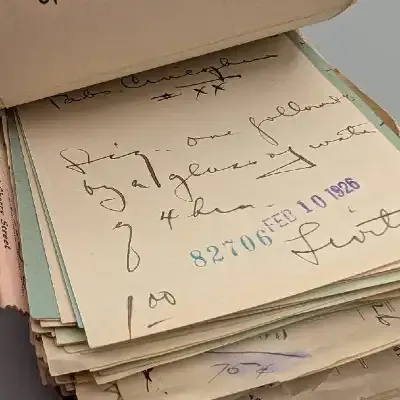 Tabs.
# XX
Sig. one followed
by a glass of water
q 4 hrs.
82706 FEB 10 1926
1 00
Street